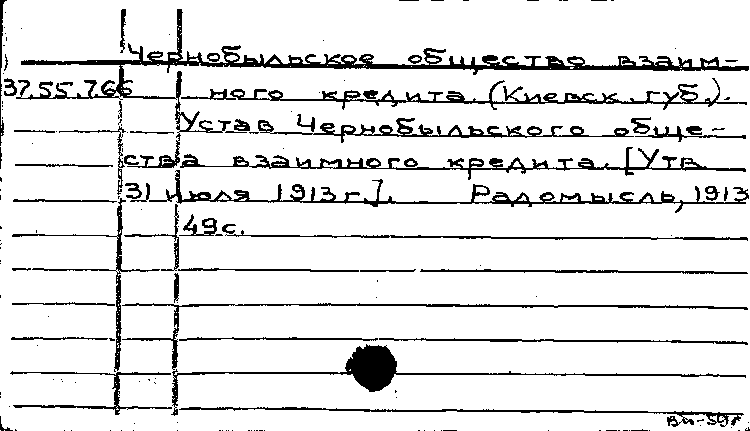 Чернобыльское общество взаим-
37.55.766 ного кредита (Киевск. губ.).
Устав Чернобыльского обще-
ства взаимного кредита. [Утв.
31 июля 1913 г.]. Радомысль, 1913
49 с.